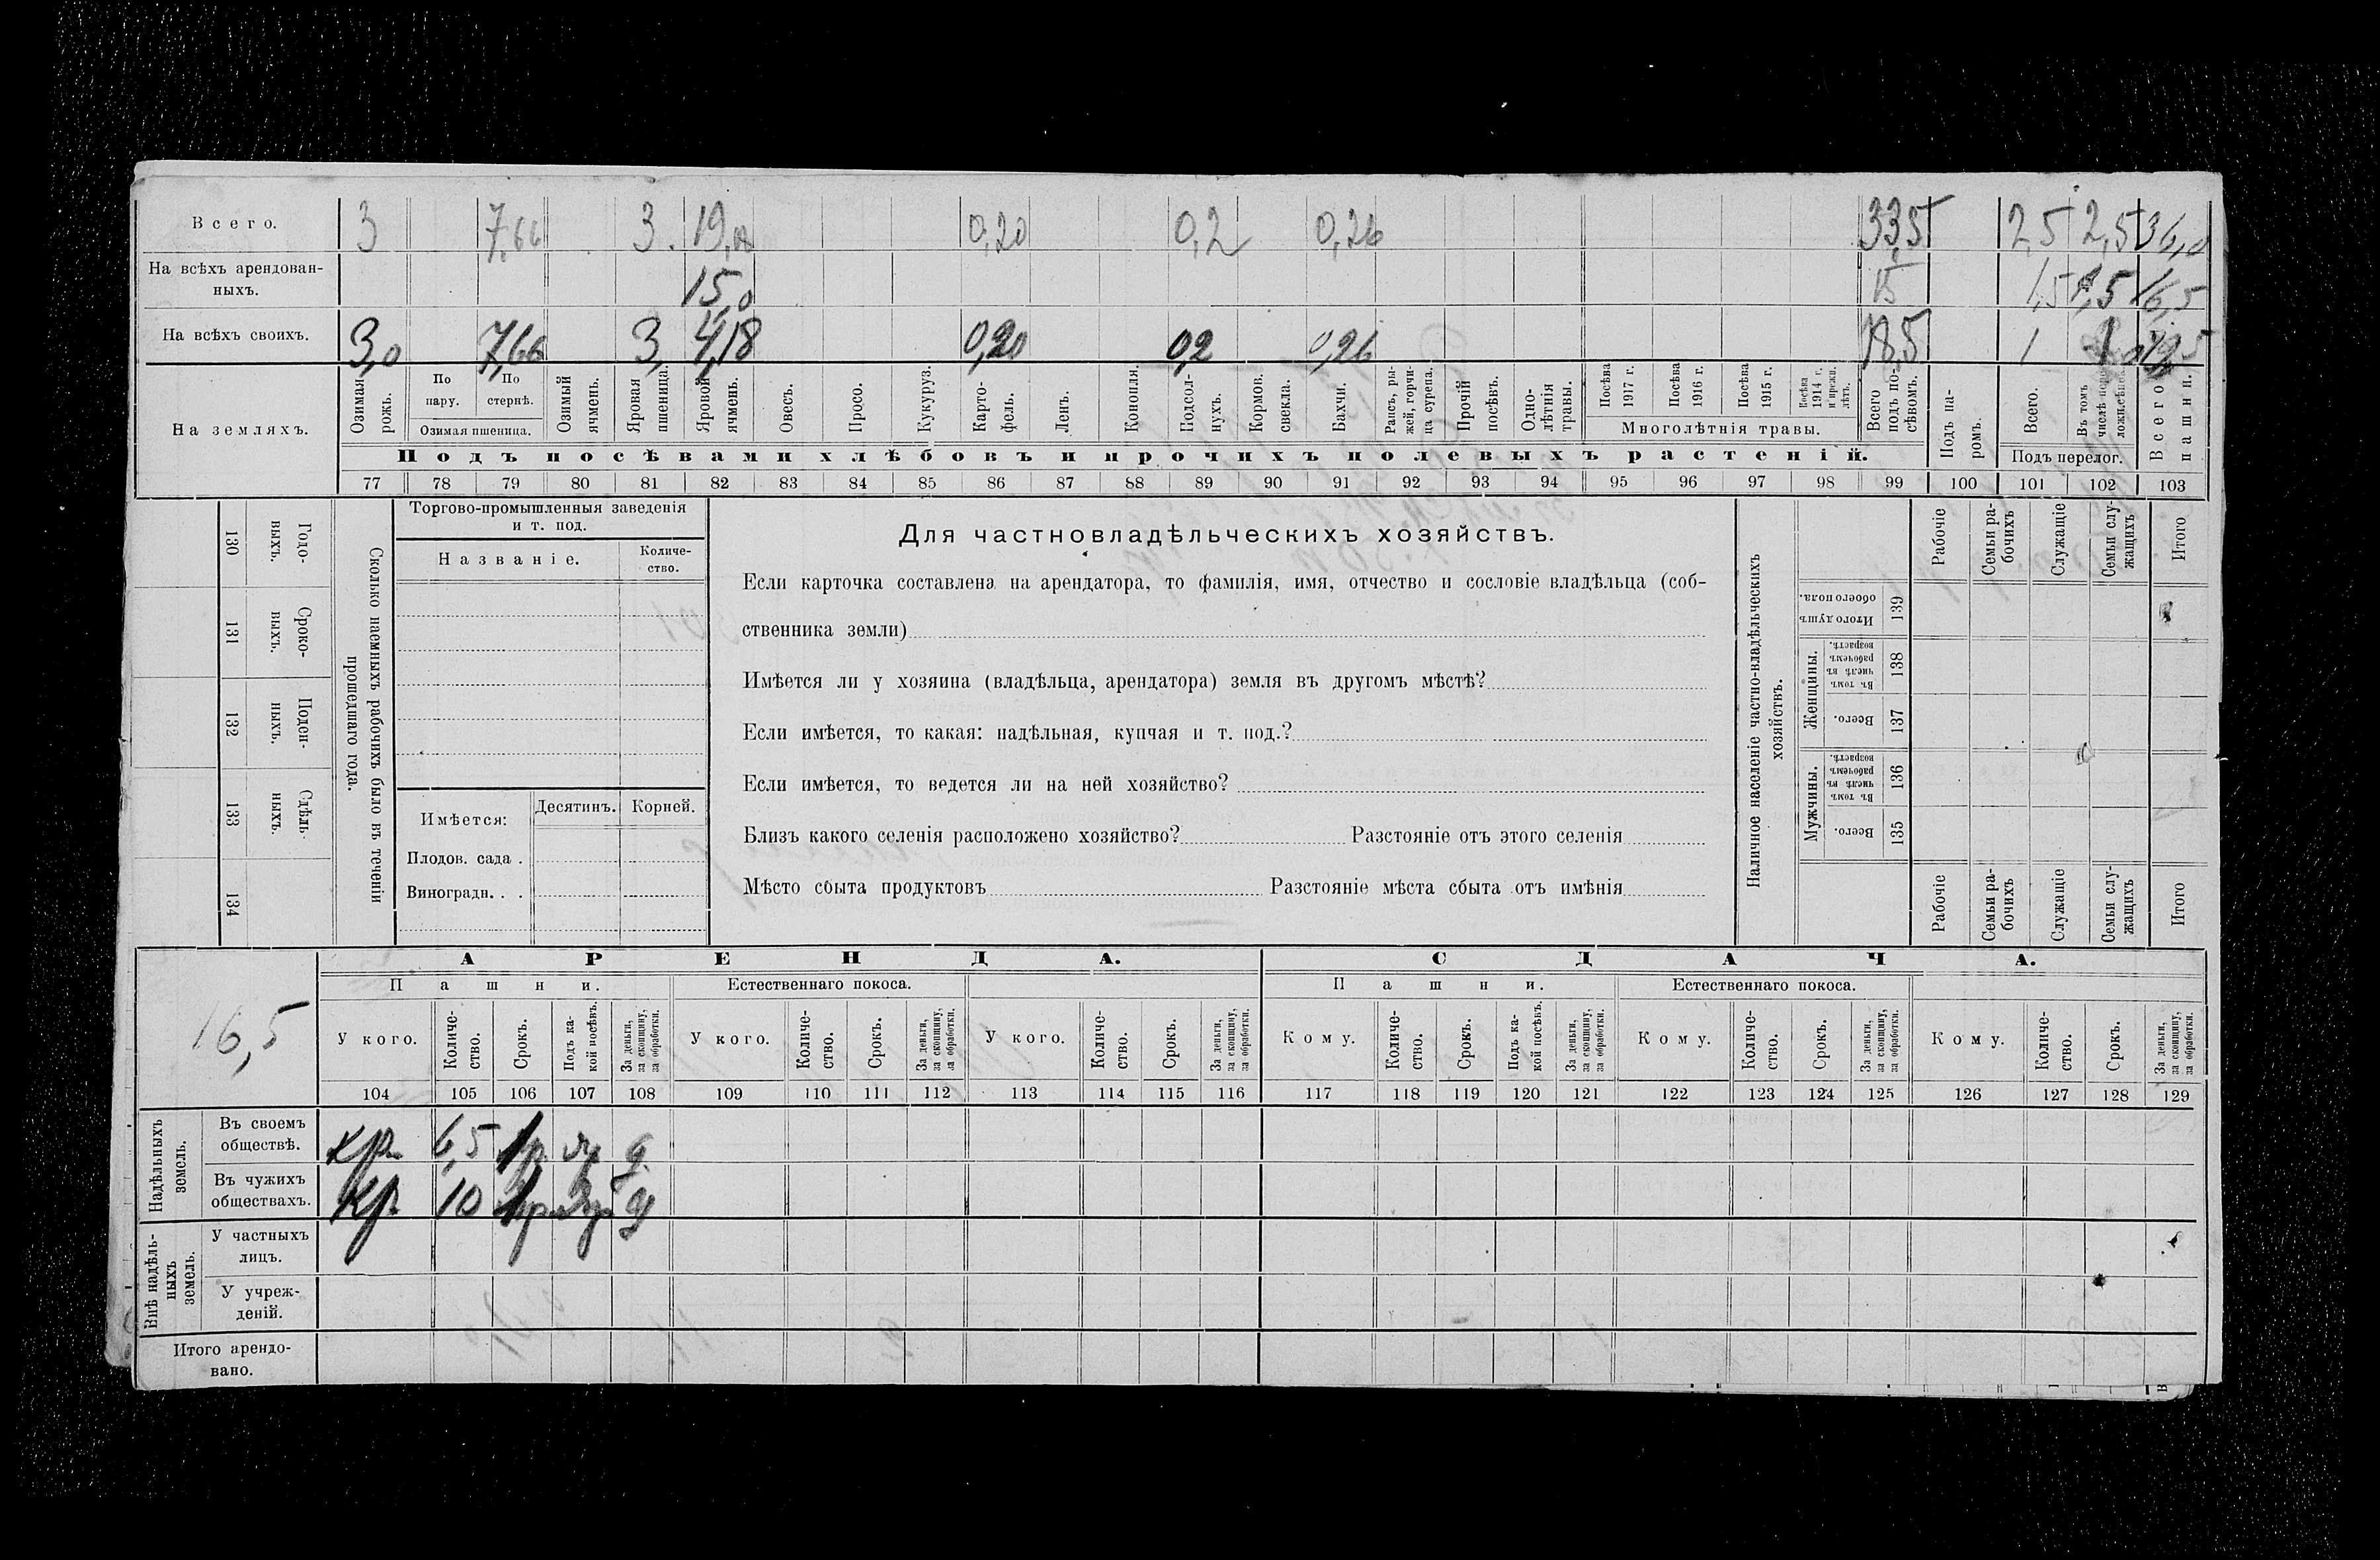 Всего. 3 7,66 3. 19,18 0,20 0,2 0,26 33,5 2,5 2,5 36,0
На всѣхъ арендован-
ныхъ. 15,0 15 1,5 1,5 16,5
На всѣхъ своихъ. 3,0 7,66 3, 4,18 0,20 0,2 0,26 18,5 1 1
На земляхъ.
Озимая рожь.
По пару.
По стернѣ.
Озимая пшеница.
Озимый ячмень.
Яровая пшеница.
Яровой ячмень.
Овесъ.
Просо.
Кукуруз.
Карто-
фель.
Ленъ.
Конопля.
Подсол-
нухъ.
Кормов. свекла.
Бахчи.
Рапсъ, ры-
жей, горчи-
ца сурепа.
Прочій посѣвъ.
Одно-
лѣтнія травы.
Посѣва 1917 г.
Посѣва 1916 г.
Посѣва 1915 г.
Посѣва 1914 г.
Многолѣтнія травы.
Всего подъ по-
сѣвомъ.
Подъ па-
ромъ.
Всего.
Въ томъ числѣ
Подъ перелог.
Всего пашни.
Подъ посѣвами хлѣбовъ и прочихъ полевыхъ растеній.
77 78 79 80 81 82 83 84 85 86 87 88 89 90 91 92 93 94 95 96 97 98 99 100 101 102 103
130 Годо-
ныхъ.
131 Сроко-
ныхъ.
132 Поден-
ныхъ.
133 Сдѣль-
ныхъ.
134
Сколько наемныхъ рабочихъ было въ теченіи
прошедшаго года.
Торгово-промышленныя заведенія
и т. под.
Названіе.
Количе-
ство.
Имѣется: Десятинъ. Корней.
Плодов. сада .
Виноградн. . .
Для частновладѣльческихъ хозяйствъ.
Если карточка составлена на арендатора, то фамилія, имя, отчество и сословіе владѣльца (соб-
ственника земли)
Имѣется ли у хозяина (владѣльца, арендатора) земля въ другомъ мѣстѣ?
Если имѣется, то какая: надѣльная, купчая и т. под.?
Если имѣется, то ведется ли на ней хозяйство?
Близъ какого селенія расположено хозяйство? Разстояніе отъ этого селенія
Мѣсто сбыта продуктовъ Разстояніе мѣста сбыта отъ имѣнія
Наличное населеніе частно-владѣльческихъ
хозяйствъ.
Рабочіе
Семьи ра-
бочихъ
Служащіе
Семьи слу-
жащихъ
Итого
Итого душъ обоего пола. 139
Женщины.
Въ томъ числѣ въ рабочемъ возрастѣ. 138
Всего. 137
Мужчины.
Въ томъ числѣ въ рабочемъ возрастѣ. 136
Всего. 135
Рабочіе
Семьи ра-
бочихъ
Служащіе
Семьи слу-
жащихъ
Итого
16,5
АРЕНДА. СДАЧА.
Пашни. Естественнаго покоса. Пашни. Естественнаго покоса.
У кого.
Количе-
ство.
Срокъ.
Подъ ка-
кой посѣвъ.
За деньги,
за скопщину,
за обработки.
У кого.
Количе-
ство.
Срокъ.
За деньги,
за скопщину,
за обработки.
У кого.
Количе-
ство.
Срокъ.
За деньги,
за скопщину,
за обработки.
Кому.
Количе-
ство.
Срокъ.
Подъ ка-
кой посѣвъ.
За деньги,
за скопщину,
за обработки.
Кому.
Количе-
ство.
Срокъ.
За деньги,
за скопщину,
за обработки.
Кому.
Количе-
ство.
Срокъ.
За деньги,
за скопщину,
за обработки.
104 105 106 107 108 109 110 111 112 113 114 115 116 117 118 119 120 121 122 123 124 125 126 127 128 129
Надѣльныхъ
земель.
Въ своемъ
обществѣ. кр. 6,5
Въ чужихъ
обществахъ. Кр. 10
Внѣ надѣль-
ныхъ
земель.
У частныхъ
лицъ.
У учреж-
деній.
Итого арендо-
вано.